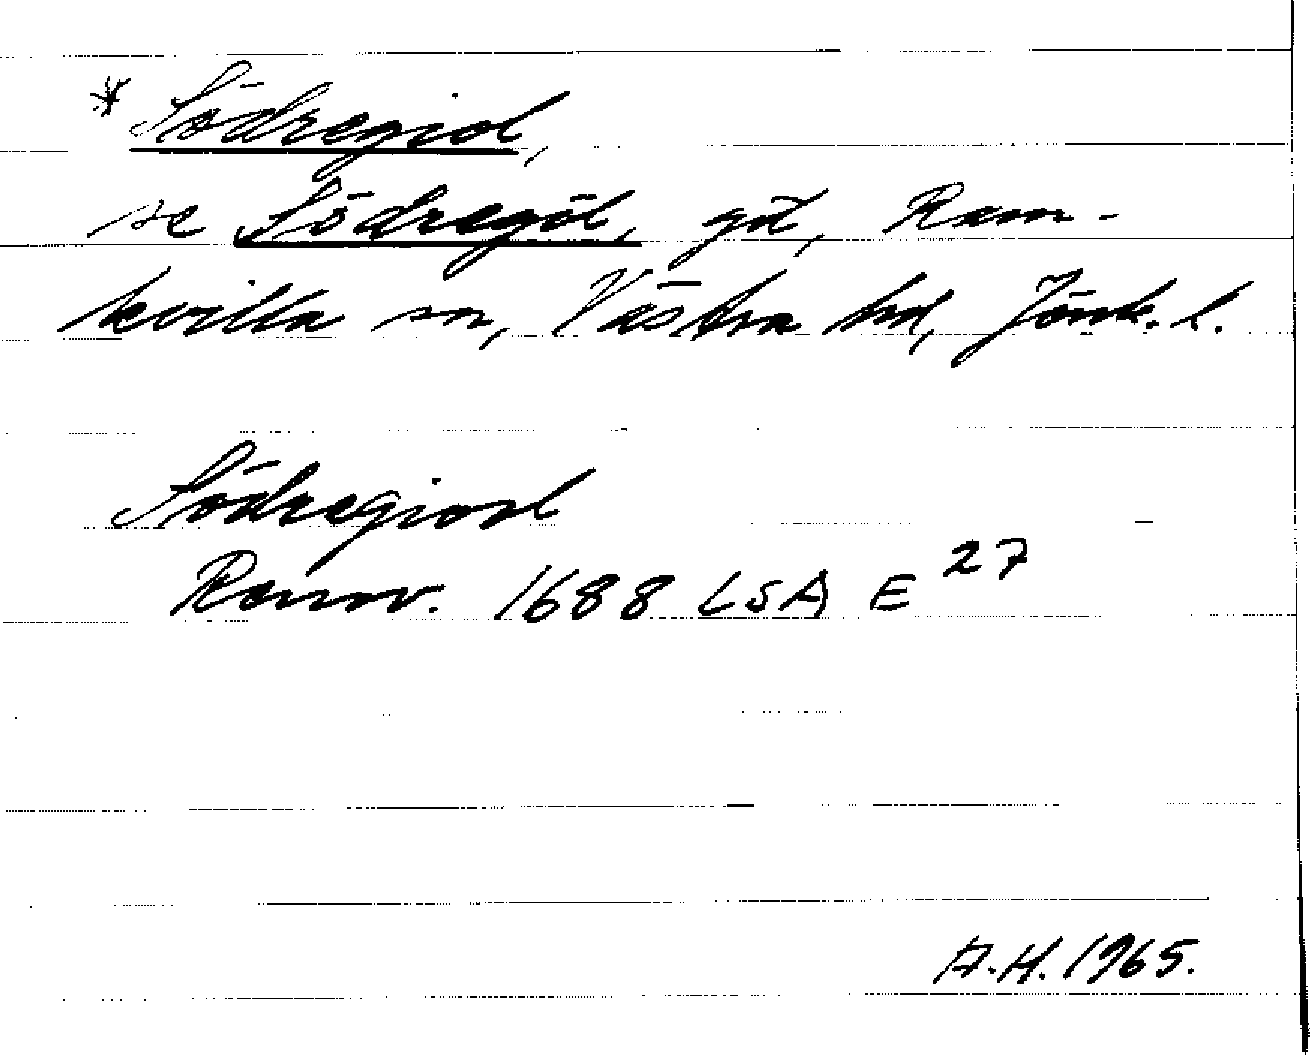 * Södregiöl,
se Södregöl, gd, Ram-
kvilla sn, Västra hd, Jönk. l.
Södregiöl
Rannv. 1688 LSA E 27
A.H. 1965.